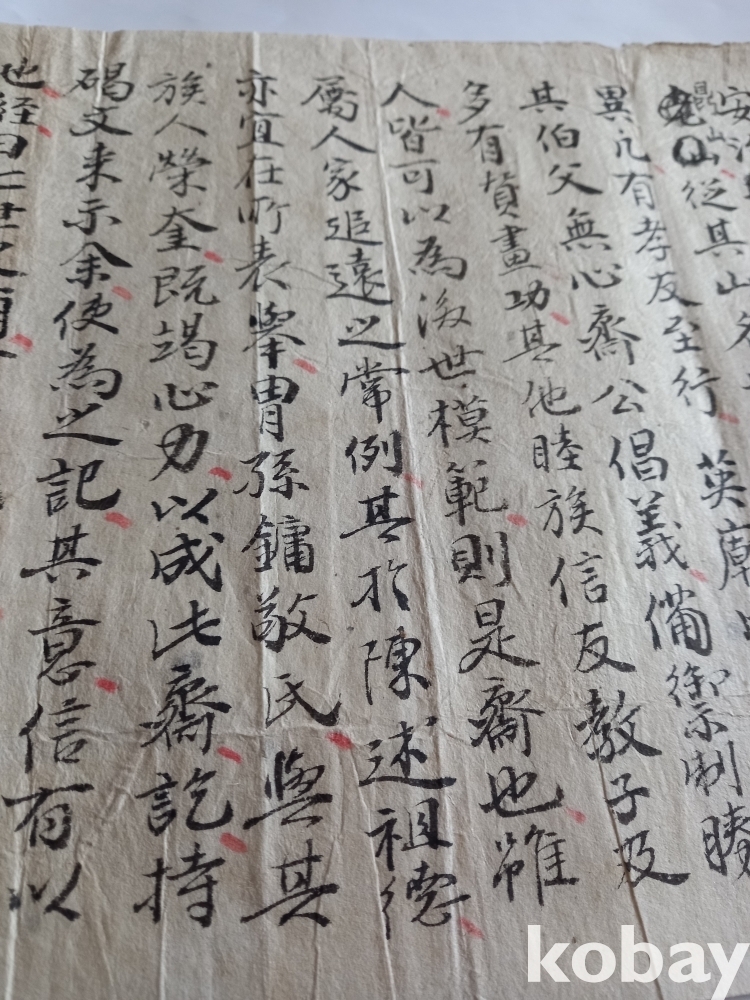 安
崑山從其山
英摩
異凡有孝友至行
其伯父無心齋公倡義備禦制勝
多有贊畫功其他睦族信友教子及
人皆可以為後世模範則是齋也雖
屬人家追遠之常例其於陳述祖德
亦宜在所表舉胄孫鏞敬氏與其
族人榮奎既竭心力以成此齋訖持
碣文來示余使為之記其意信有以
也経曰
kobay